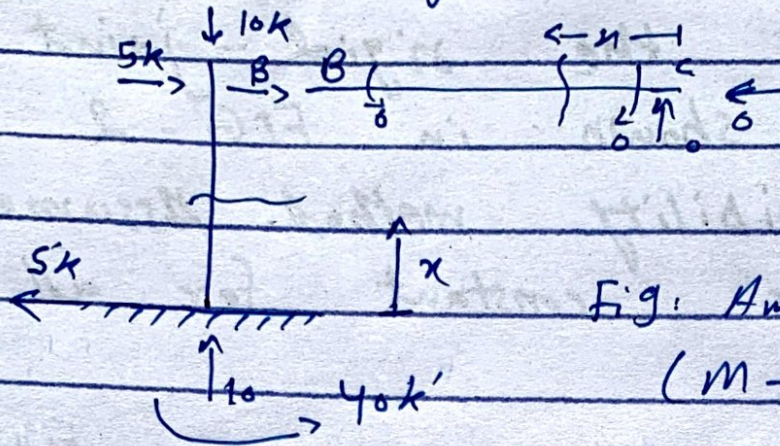 ↓10k
5k → B → B ← x → c
0 0 ↑ 0 ← 0
5k
x
Fig: Am
↑10 40k'
(M-